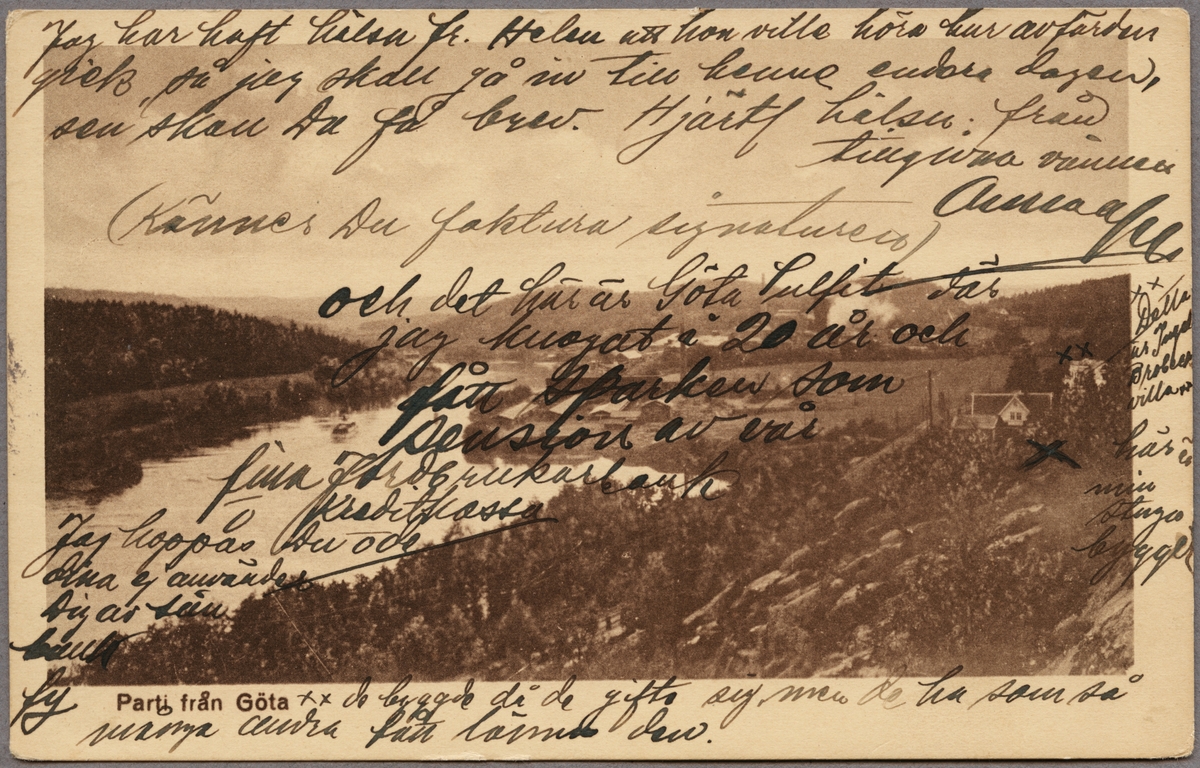 Jag har haft hälsn fr. Helen att hon ville höra hur avfärden
gick, så jag skall gå in till henne endera dagen,
sen skall Du få brev. Hjärtl hälsn. från
tillgivna vännen
Anna
(Känner Du faktura signaturen)
och det här är Göta Sulfit där
jag knogat i 20 år och
fått sparken som
pension av vår
fina Jordbrukarbank
Kreditkassa
Jag hoppas Du o de
dina ej använder
Dig av sån
bank
xx Detta
är
villa xx
xx
x
här är
min
stuga
bygge
Parti från Göta
fy xx de byggde då de gifte sig, men de ha som så
många andra fått lämna den.